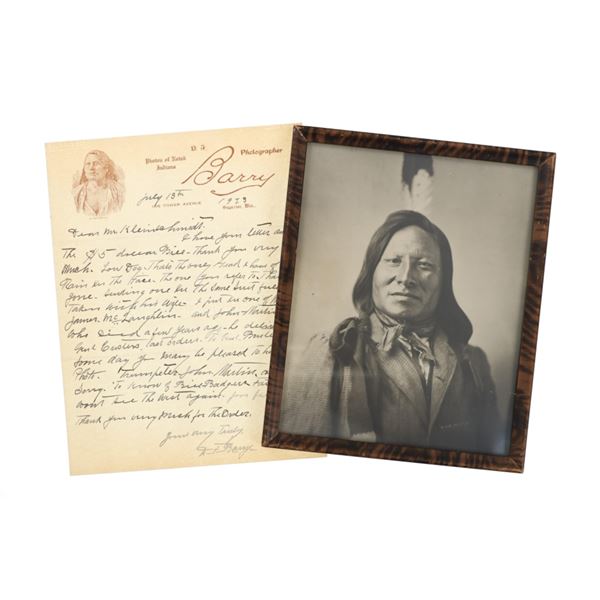 D. F.
Barry
Photographer
Photos of Noted
Indians
July 13th 1923
Superior, Wis.
Dear Mr Kleinschmidt.
I have your letter and
The $5 dollar Price - Thank you very
Much. Low Dog. That's Thooney
Rain in the Face. The one you refer to I have
gone. Sending one in The same suit
Taken with his wife. I put in one of
James McLaughlin. and John Martin
who died a few years ago he delivered
Genl Custers last orders. To
some day you may be pleased to have
Photo. Trumpeter John Martin
Sorry. To know of
wont see the West again.
Thank you very Much for The Order.
Yours very Truly
D F Barry